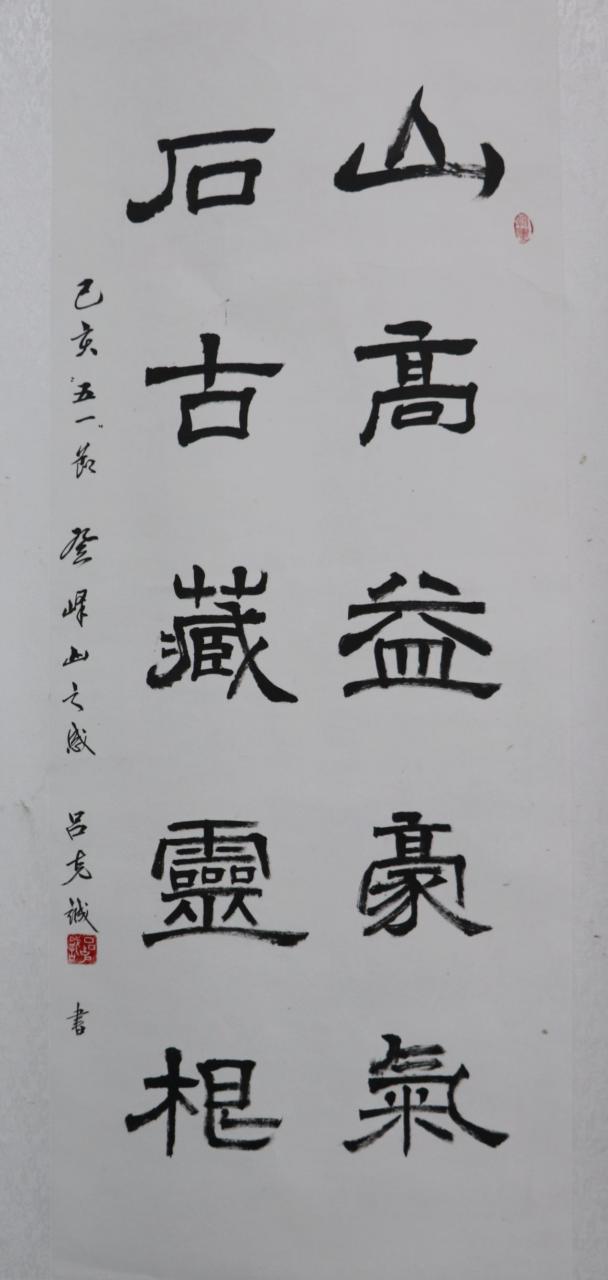 山高益豪氣
石古藏靈根
己亥"五一"節 登峄山之感 吕克誠 書